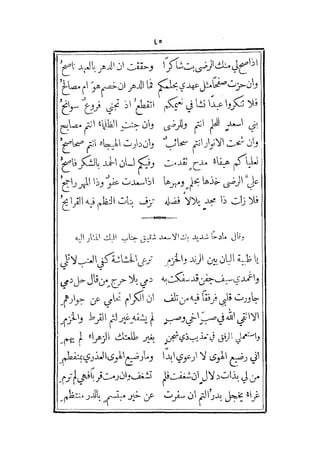 ٤٥
اذا صح لي منك الرضى بت شاكرًا وحققت ان الدهر بالعهد ناصح
وان حزت صفحًا مثل عهدي بحلمكم فما الدهر ان خصم هو ام مصالح
فلا تنكروا عبدًا نشا في نعيمكم اتقطع اذ تجني فروع سوانح
بني اسعد للحلم انتم وللرضى وان جنت الظلماء انتم مصابح
وان شحت الانوار انتم سحائب وان دارت الهيجاء انتم صحاصح
لعلياكم هيفاء مدح تقدمت وفيكم لسان الحمد بالشكر فاصح
علي الرضى خذها بحلم ومهرها اذا سعدت عفو وذا المهر راجح
فلا زلت ذا مجد يلألأ فضله تزف بنات النظم فيه القرايح
وقال مادحًا شديد بك الاسعد شقيق جناب البك المشار اليه
يا ظبية البان بين الرند والخزم ترعى الحشاشة كفي العتب لا تلمي
واغمدي سيف جفن قد سفكت به دمي بلا حرج من قال حل دمي
جاورت قلبي فرفقًا فيه من تلف ان الكرام تحامي عن جوارهم
الا اتقي الله في صب اخي وصب لم يشفه غير لثم القرط والخزم
واستعملي الرفق في تعذيب ذي شجن بغير طلعتك الزهراء لم يهم
اني رضيع الهوى لا ارعوي ابدًا وما رضيع الهوى العذري بمنفطم
من لي بذات دلال ان شغفت فلم تشغف وان رمت قربًا فهي لم ترم
غراء يخجل بدر التم ان سفرت عن خير مبتسم بالدر منتظم